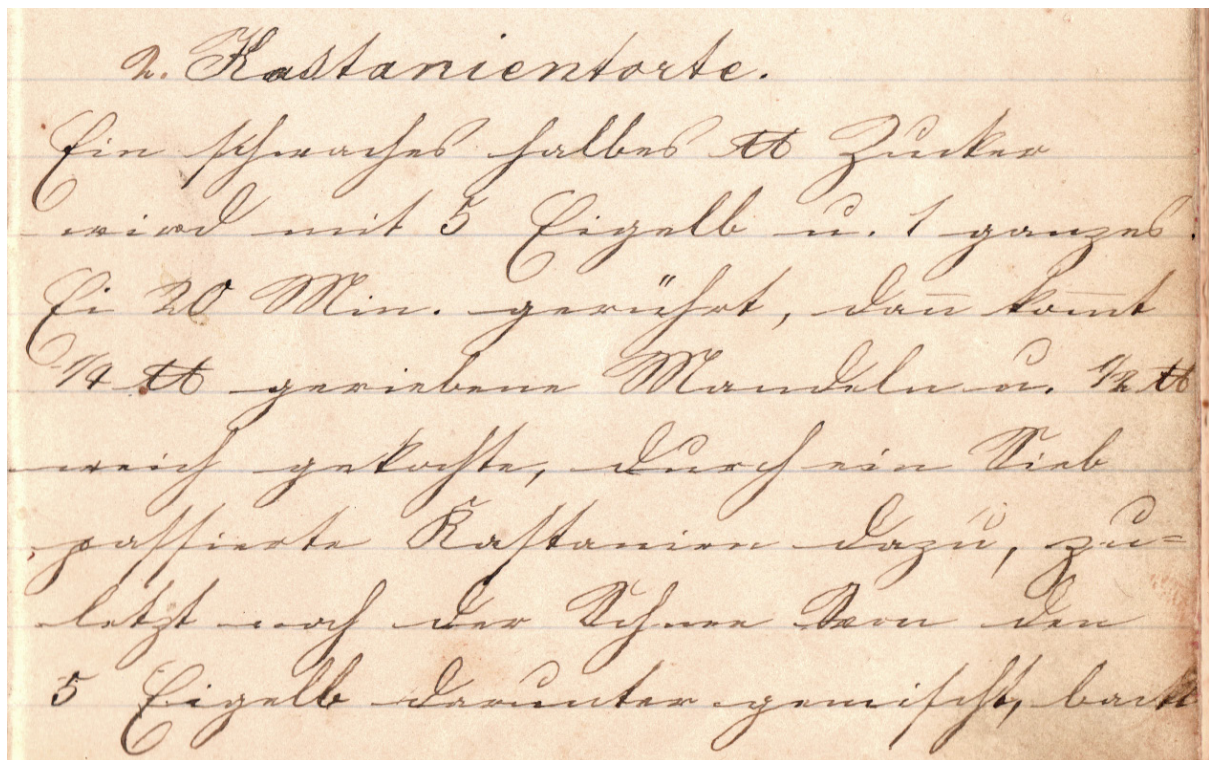 2. Kastanientorte.
Ein schwaches halbes ℔ Zucker
wird mit 5 Eigelb u. 1 ganzes
Ei 20 Min. gerührt, dan̅ kom̅t
1/4 ℔ geriebene Mandeln u. 1/2 ℔
weich gekochte, durch ein Sieb
passierte Kastanien dazu, zu=
letzt noch der Schnee von den
5 Eigelb darunter gemischt, backt